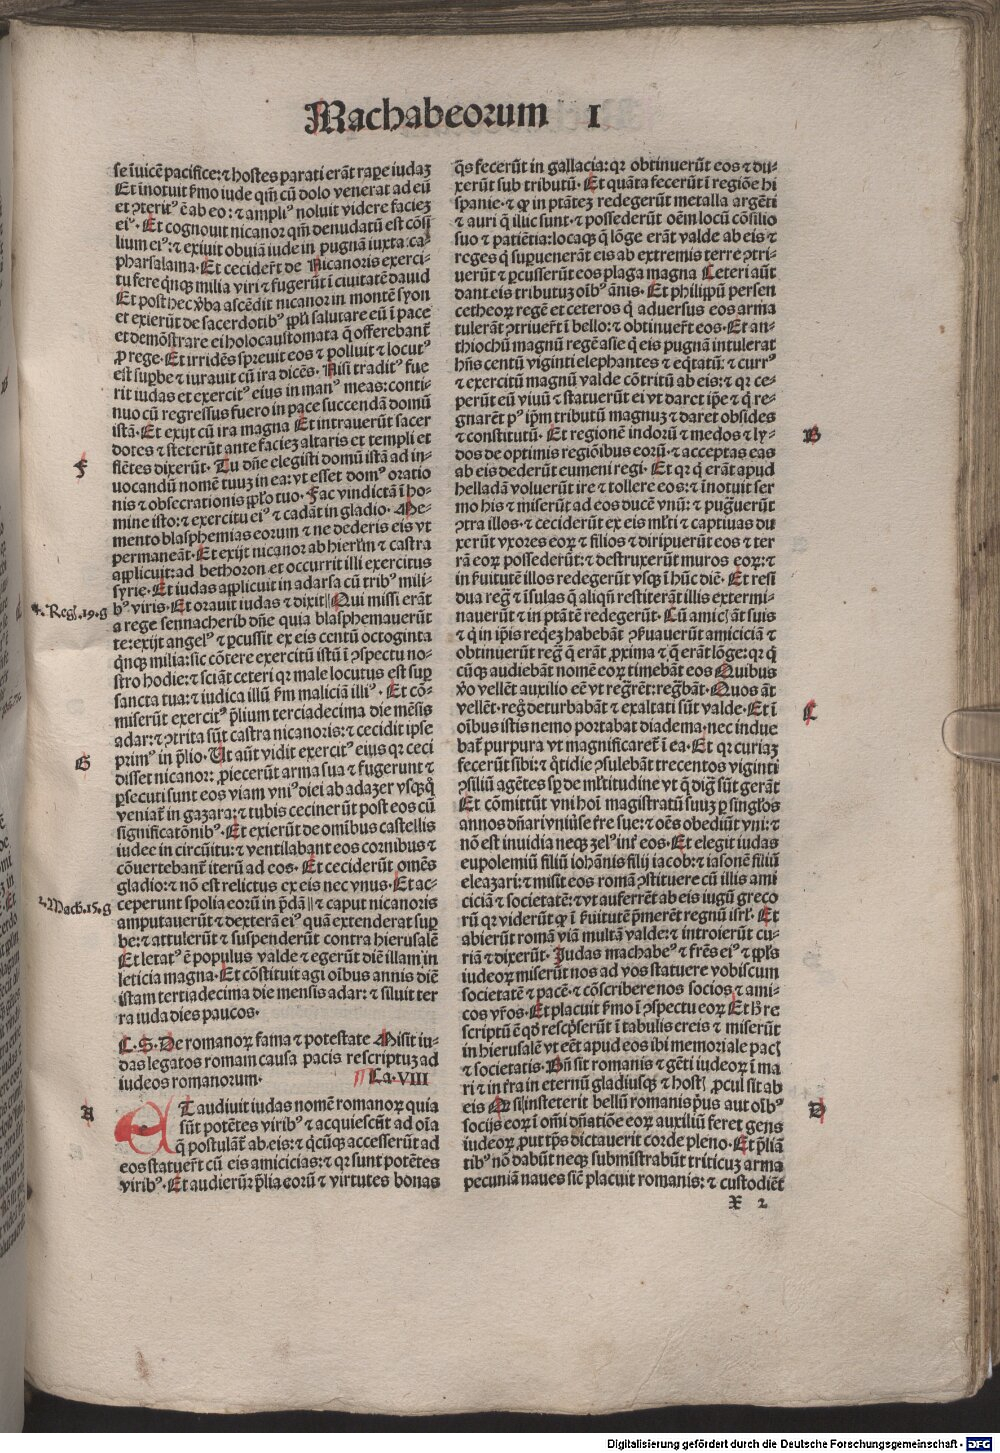 Machabeorum I
se īuicē pacifice: ⁊ hostes parati erāt raꝑe iudaʒ
Et īnotuit ṗmo iude qm̄ cū dolo venerat ad eū
et ꝯteritꝰ ē ab eo: ⁊ ampliꝰ noluit videre facieʒ
eiꝰ. Et cognouit nicanor qm̄ denudatū est cōsi
lium eiꝰ: ⁊ exiuit obuiā iude in pugnā iuxta ca-
pharsalama. Et ceciderūt de Nicanoris exerci-
tu fere qͥnqꝫ milia viri ⁊ fugerūt ī ciuitatē dauid
Et post hec v̄ba ascēdit nicanor in montē syon
et exierūt de sacerdotibꝰ ppl̄i salutare eū ī pace
et demōstrare ei holocaustomata q̄ offerebant̄
ꝓ rege. Et irridēs spreuit eos ⁊ polluit ⁊ locutꝰ
est suꝑbe ⁊ iurauit cū ira dicēs. Nisi traditꝰ fue
rit iudas et exercitꝰ eius in manꝰ meas: conti-
nuo cū regressus fuero in pace succendā domū
istā. Et exijt cū ira magna Et intrauerūt sacer
dotes ⁊ steterūt ante facieʒ altaris et templi et
flētes dixerūt. Tu dn̄e elegisti domū istā ad in-
uocandū nomē tuuʒ in ea: vt esset domꝰ oratio
nis ⁊ obsecrationis ppl̄o tuo. Fac vindictā ī ho-
mine isto: ⁊ exercitu eiꝰ ⁊ cadāt in gladio. Me-
mento blasphemias eorum ⁊ ne dederis eis vt
permaneāt. Et exijt nicanor ab hierl̄m ⁊ castra
applicuit: ad bethoron et occurrit illi exercitus
syrie. Et iudas applicuit in adarsa cū tribꝰ mili-
bꝰ viris. Et orauit iudas ⁊ dixit ‖ Qui missi erāt
a rege sennacherib dn̄e quia blasphemauerūt
te: exijt angelꝰ ⁊ ꝑcussit ex eis centū octoginta
qͥnqꝫ milia: sic cōtere exercitū istū ī ꝯspectu no-
stro hodie: ⁊ sciāt ceteri qꝛ male locutus est suꝑ
sancta tua: ⁊ iudica illū ẜm maliciā illiꝰ. Et cō-
miserūt exercitꝰ p̄lium terciadecima die mēsis
adar: ⁊ ꝯtrita sūt castra nicanoris: ⁊ cecidit ipse
primꝰ in p̄lio. Ut aūt vidit exercitꝰ eius qꝛ ceci
disset nicanor: ꝓiecerūt arma sua ⁊ fugerunt ⁊
ꝑsecuti sunt eos viam vniꝰ diei ab adazer vsqꝫqͦ
veniat̄ in gazara: ⁊ tubis cecinerūt post eos cū
significatōnibꝰ. Et exierūt de omībus castellis
iudee in circūitu: ⁊ ventilabant eos cornibus ⁊
cōuertebant̄ iterū ad eos. Et ceciderūt omēs
gladio: ⁊ nō est relictus ex eis nec vnus. Et ac-
ceperunt spolia eorū in p̄dā ‖ ⁊ caput nicanoris
amputauerūt ⁊ dexterā eiꝰ quā extenderat suꝑ
be: ⁊ attulerūt ⁊ suspenderūt contra hierusalē
Et letatꝰ ē populus valde ⁊ egerūt diē illam in
leticia magna. Et cōstituit agi oībus annis diē
istam tertiadecima die mensis adar: ⁊ siluit ter
ra iuda dies paucos.
C.S. De romanoꝝ fama ⁊ potestate Misit iu-
das legatos romam causa pacis rescriptuʒ ad
iudeos romanorum. Ca. VIII
ET audiuit iudas nomē romanoꝝ quia
sūt potētes viribꝰ ⁊ acquiescūt ad oīa
q̄ postulāt̄ ab eis: ⁊ qͥcūqꝫ accesserūt ad
eos statuer̄t cū eis amicicias: ⁊ qꝛ sunt potētes
viribꝰ. Et audierūt p̄lia eorū ⁊ virtutes bonas
q̄s fecerūt in gallacia: qꝛ obtinuerūt eos ⁊ du-
xerūt sub tributū. Et quāta fecerūt ī regiōe hi
spanie. ⁊ qꝫ in ptāteʒ redegerūt metalla argēti
⁊ auri q̄ illic sunt. ⁊ possederūt oēm locū cōsilio
suo ⁊ patiētia: locaqꝫ q̄ lōge erāt valde ab eis ⁊
reges qͥ suꝑuenerāt eis ab extremis terre ꝯtri-
uerūt ⁊ ꝑcusserūt eos plaga magna Ceteri aūt
dant eis tributuʒ oībꝰ ānis. Et philippū persen
cetheoꝝ regē et ceteros qͥ aduersus eos arma
tulerāt ꝯtriuer̄t ī bello: ⁊ obtinuer̄t eos. Et an-
thiochū magnū regē asie qͥ eis pugnā intulerat
hn̄s centū viginti elephantes ⁊ eqͥtatū: ⁊ currꝰ
⁊ exercitū magnū valde cōtritū ab eis: ⁊ qꝛ ce-
perūt eū viuū ⁊ statuerūt ei vt daret ip̄e ⁊ qͥ re-
gnarēt pꝰ ip̄m tributū magnuʒ ⁊ daret obsides
⁊ constitutū. Et regionē indorū ⁊ medos ⁊ ly-
dos de optimis regiōibus eorū. ⁊ acceptas eas
ab eis dederūt eumeni regi. Et qꝛ qͥ erāt apud
helladā voluerūt ire ⁊ tollere eos: ⁊ īnotuit ser
mo his ⁊ miserūt ad eos ducē vnū: ⁊ pug̈uerūt
ꝯtra illos. ⁊ ceciderūt ex eis ml̄ti ⁊ captiuas du
xerūt vxores eoꝝ ⁊ filios ⁊ diripuerūt eos ⁊ ter
rā eoꝝ possederūt: ⁊ destruxerūt muros eoꝝ: ⁊
in ẜuitutē illos redegerūt vsqꝫ ī hūc diē. Et resi
dua reg̈ ⁊ īsulas q̄ aliqn̄ restiterāt illis extermi-
nauerūt ⁊ in ptātē redegerūt. Cū amicꝭ aūt suis
⁊ qͥ in ip̄is reqͥeʒ habebāt ꝯẜuauerūt amiciciā ⁊
obtinuerūt reg̈ q̄ erāt ꝓxima ⁊ q̄ erāt lōge: qꝛ qͥ
cūqꝫ audiebāt nomē eoꝝ timebāt eos Quibus
v̊o vellēt auxilio eē vt reg̈rēt: reg̈bāt. Quos āt
vellēt. reg̈ deturbabāt ⁊ exaltati sūt valde. Et ī
oībus istis nemo portabat diadema. nec indue
bat̄ purpura vt magnificaret̄ ī ea. Et qꝛ curiaʒ
fecerūt sibi: ⁊ qͦtidie ꝯsulebāt trecentos viginti
ꝯsiliū agētes sꝑ de ml̄titudine vt q̄ dig̈ sūt gerāt
Et cōmittūt vni hoī magistratū suuʒ ꝑ singl̄os
annos dn̄ari vniūse tr̄e sue: ⁊ oēs obediūt vni: ⁊
nō est inuidia neqꝫ zelꝰ int̄ eos. Et elegit iudas
eupolemiū filiū iohānis filij iacob: ⁊ iasonē filiū
eleazari: ⁊ misit eos romā ꝯstituere cū illis ami
ciciā ⁊ societatē: ⁊ vt auferr̄et ab eis iugū greco
rū qꝛ viderūt qꝫ ī ẜuitutē p̄merēt regnū isrl̄. Et
abierūt romā viā multā valde: ⁊ introierūt cu-
riā ⁊ dixerūt. Judas machabeꝰ ⁊ fr̄es eiꝰ ⁊ ppl̄s
iudeoꝝ miserūt nos ad vos statuere vobiscum
societatē ⁊ pacē. ⁊ cōscribere nos socios ⁊ ami-
cos vr̄os. Et placuit ẜmo ī ꝯspectu eoꝝ Et h̄ re
scriptū ē qd̓ rescp̄serūt ī tabulis ereis ⁊ miserūt
in hierusalē vt eēt apud eos ibi memoriale pacꝭ
⁊ societatis. Bn̄ sit romanis ⁊ gēti iudeoꝝ ī ma
ri ⁊ in tr̄a in eternū gladiusqꝫ ⁊ hostꝭ ꝓcul sit ab
eis Qͩ si insteterit bellū romanis p̄us aut oībꝰ
socijs eoꝝ ī omī dn̄atiōe eoꝝ auxiliū feret gens
iudeoꝝ. ꝓut tp̄s dictauerit corde pleno. Et p̄liā
tibꝰ nō dabūt neqꝫ submīstrabūt triticuʒ arma
pecuniā naues sic̄ placuit romanis: ⁊ custodiēt
X 2
F
4. Reg. 19. g
G
2. Mach. 15. g
A
B
C
D
Digitalisierung gefördert durch die Deutsche Forschungsgemeinschaft - DFG